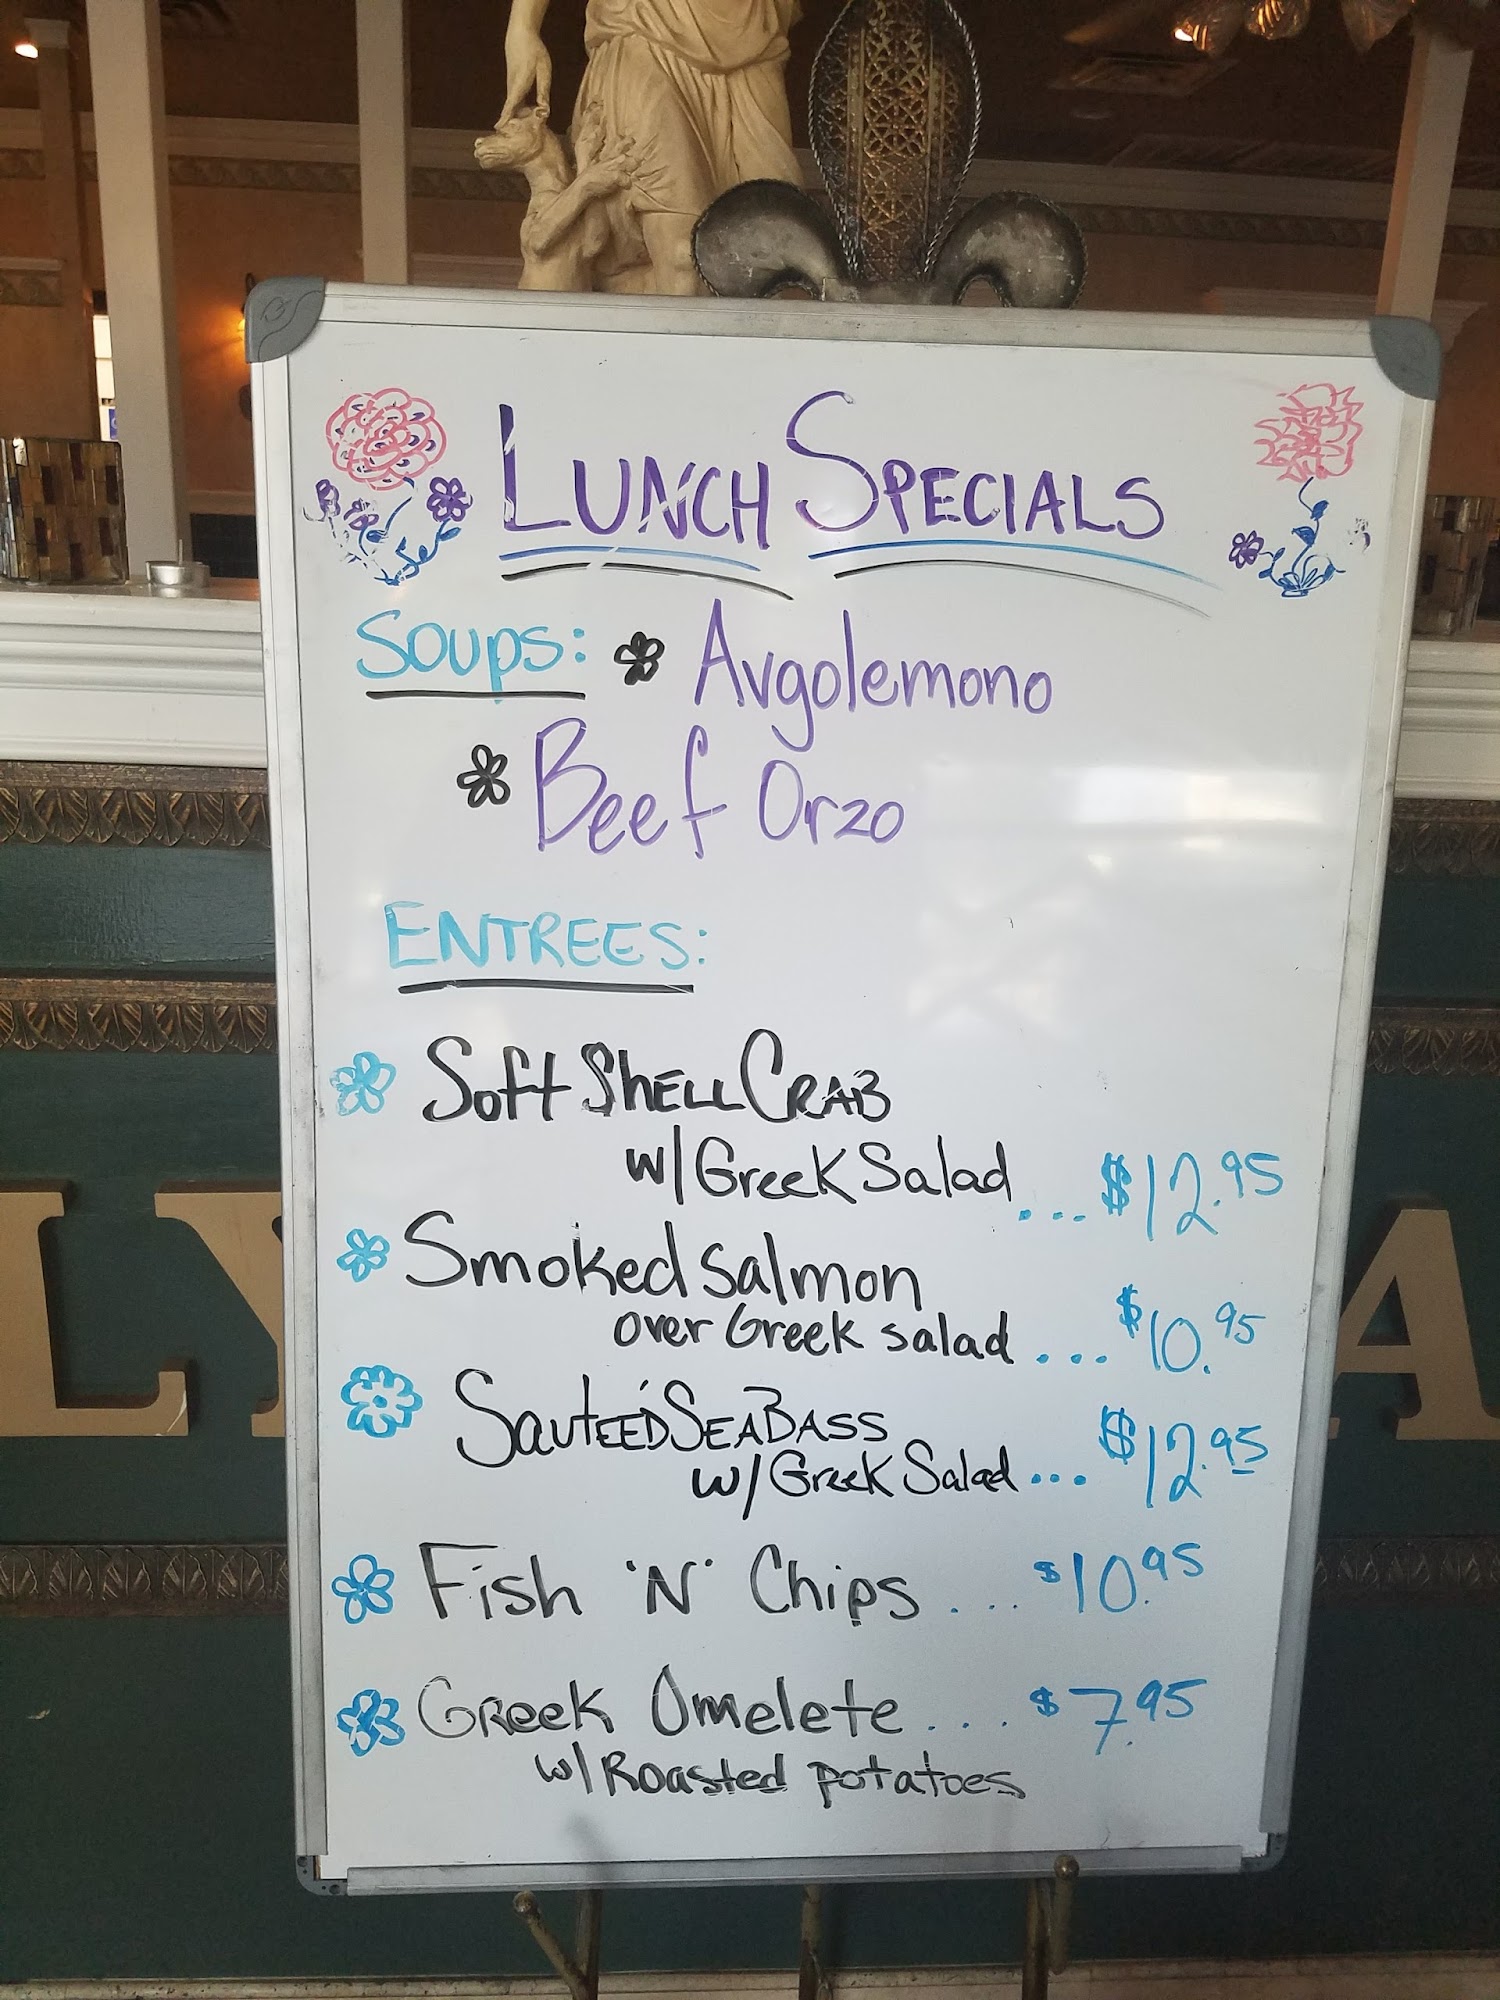 LUNCH SPECIALS
SOUPS: Avgolemono
Beef Orzo
ENTREES:
Soft Shell Crab
w/ Greek Salad ... $12.95
Smoked Salmon
over Greek salad ... $10.95
Sauteé'd Sea Bass
w/ Greek Salad ... $12.95
Fish 'N' Chips ... $10.95
Greek Omelete ... $7.95
w/ Roasted potatoes
LY
A